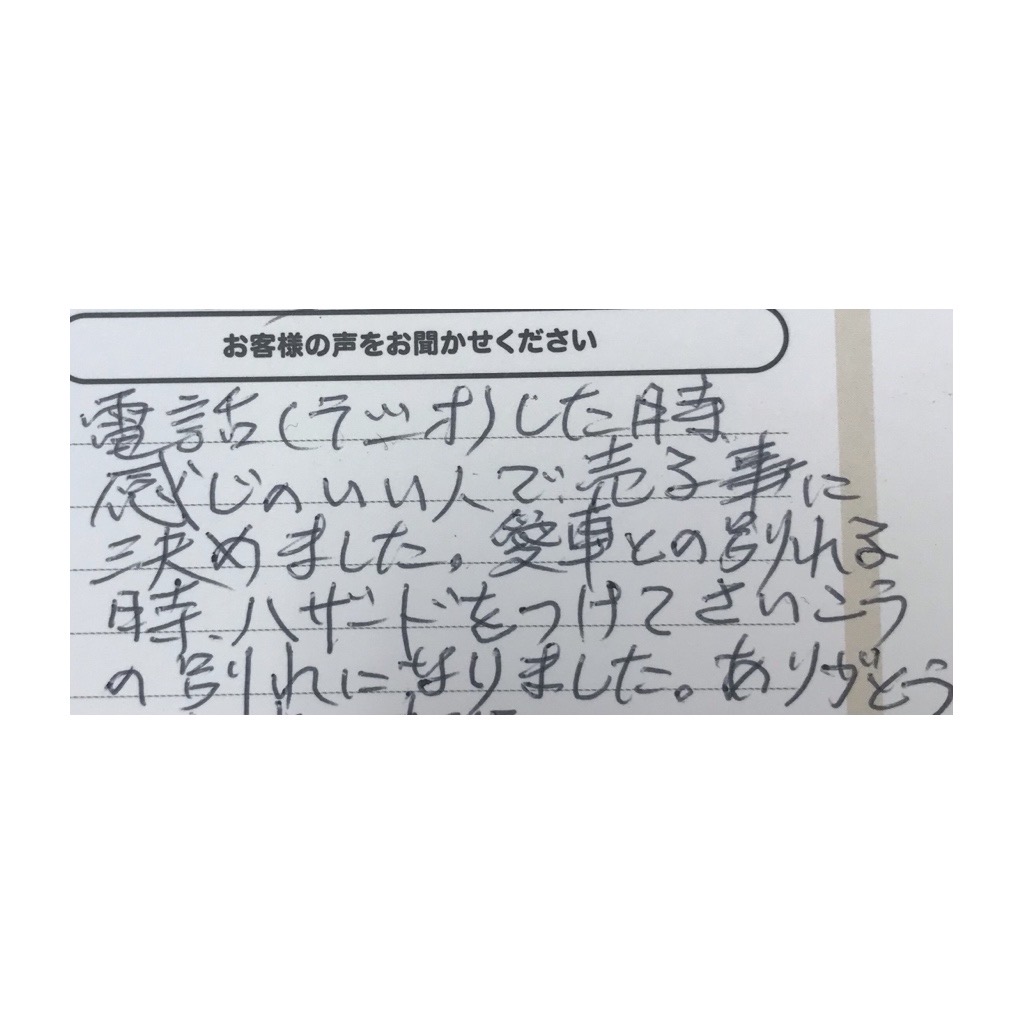 お客様の声をお聞かせください
電話(ラジオ)した時
感じのいい人で売る事に
決めました。愛車との別れる
時、ハザードをつけてさいこう
の別れになりました。ありがとう